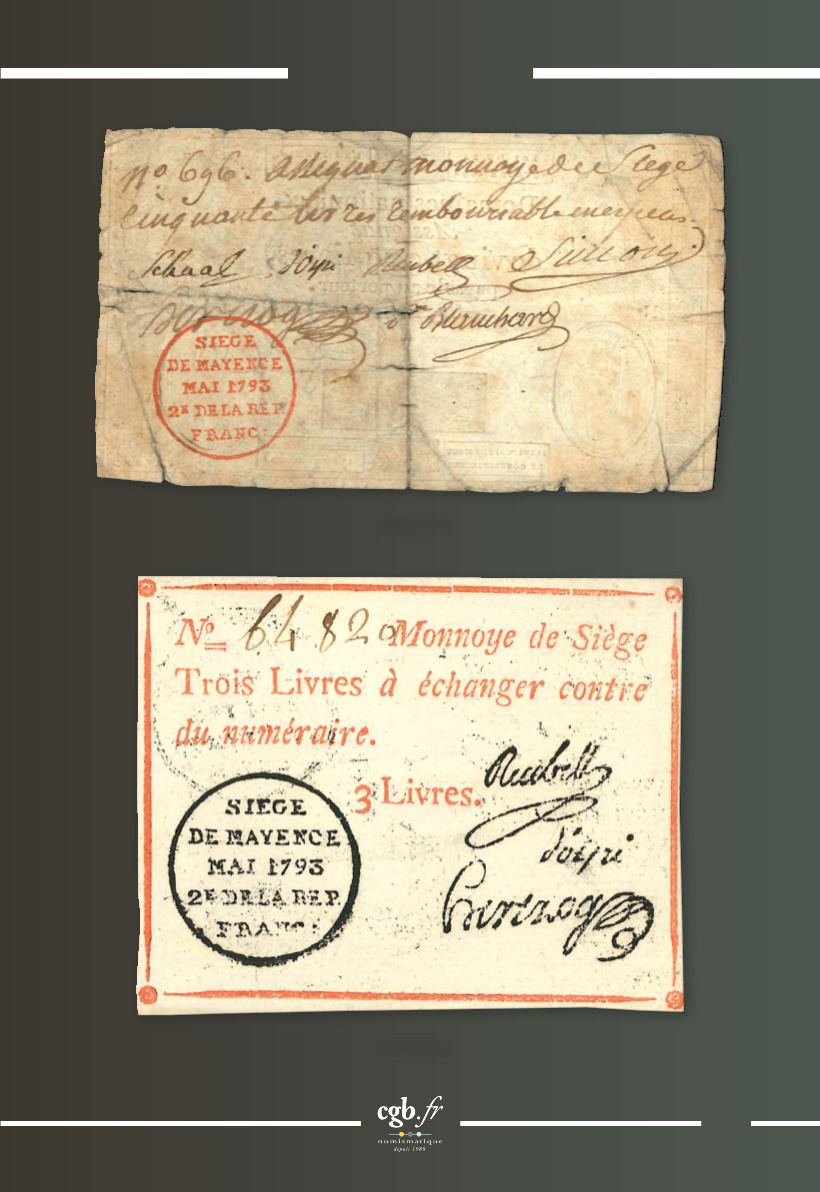 nº 696. assignat monnoye de Siege
Cinquante livres remboursable en especes.
Schaal d'oyré Reubell Simon
d. Blanchard
SIEGE
DE MAYENCE
MAI 1793
2E DE LA REP.
FRANC:
Nº 6482 Monnoye de Siège
Trois Livres à échanger contre
du numéraire.
3 Livres.
Reubell
d'oyré
SIEGE
DE MAYENCE
MAI 1793
2E DE LA REP.
FRANC:
cgb.fr
numismatique
depuis 1988